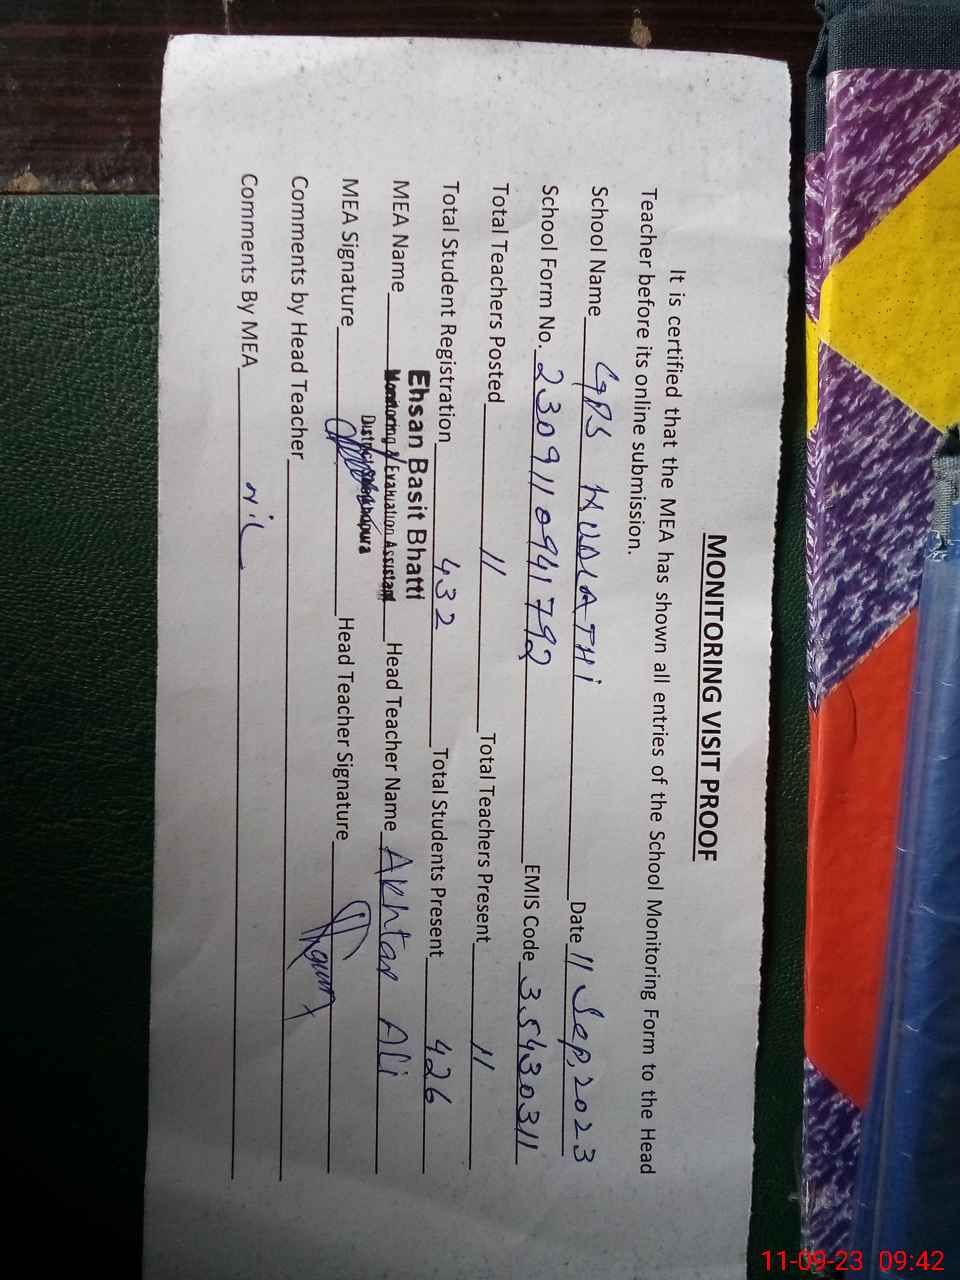 MONITORING VISIT PROOF
It is certified that the MEA has shown all entries of the School Monitoring Form to the Head
Teacher before its online submission.
School Name GPS HUDIATHI Date 11 Sep, 2023
School Form No. 23091109941792 EMIS Code 35430311
Total Teachers Posted 11 Total Teachers Present 11
Total Student Registration 432 Total Students Present 426
Ehsan Basit Bhatti
MEA Name Monitoring & Evaluation Assistant Head Teacher Name Akhtar Ali
District Sheikhupura
MEA Signature Head Teacher Signature
Comments by Head Teacher
Comments By MEA Nil
11-09-23 09:42